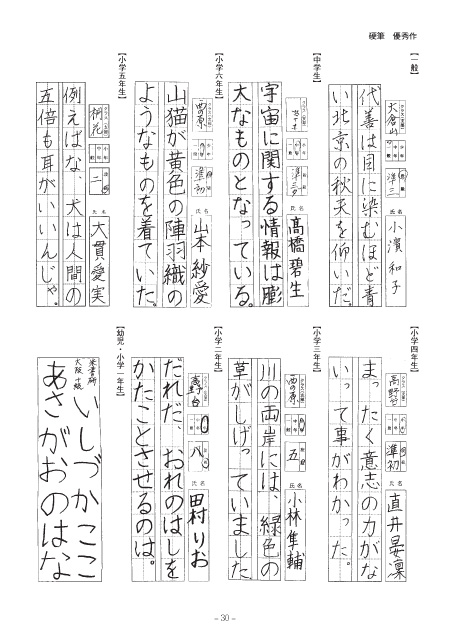 硬筆 優秀作
【一般】
大倉山
準二
小濱和子
代善は目に染むほど青
い北京の秋天を仰いだ。
【中学生】
準三
髙橋碧生
宇宙に関する情報は膨
大なものとなっている。
【小学六年生】
西の原
準初
山本紗愛
山猫が黄色の陣羽織の
ようなものを着ていた。
【小学五年生】
桐花
二
大貫愛実
例えばな、犬は人間の
五倍も耳がいいんじゃ。
【小学四年生】
高野台
準初
直井晏凛
まったく意志の力がな
いって事がわかった。
【小学三年生】
西の原
五
小林隼輔
川の両岸には、緑色の
草がしげっていました
【小学二年生】
八
田村りお
だれだ、おれのはしを
かたことさせるのは。
【幼児・小学一年生】
いしづかここ
あさがおのはな
- 30 -